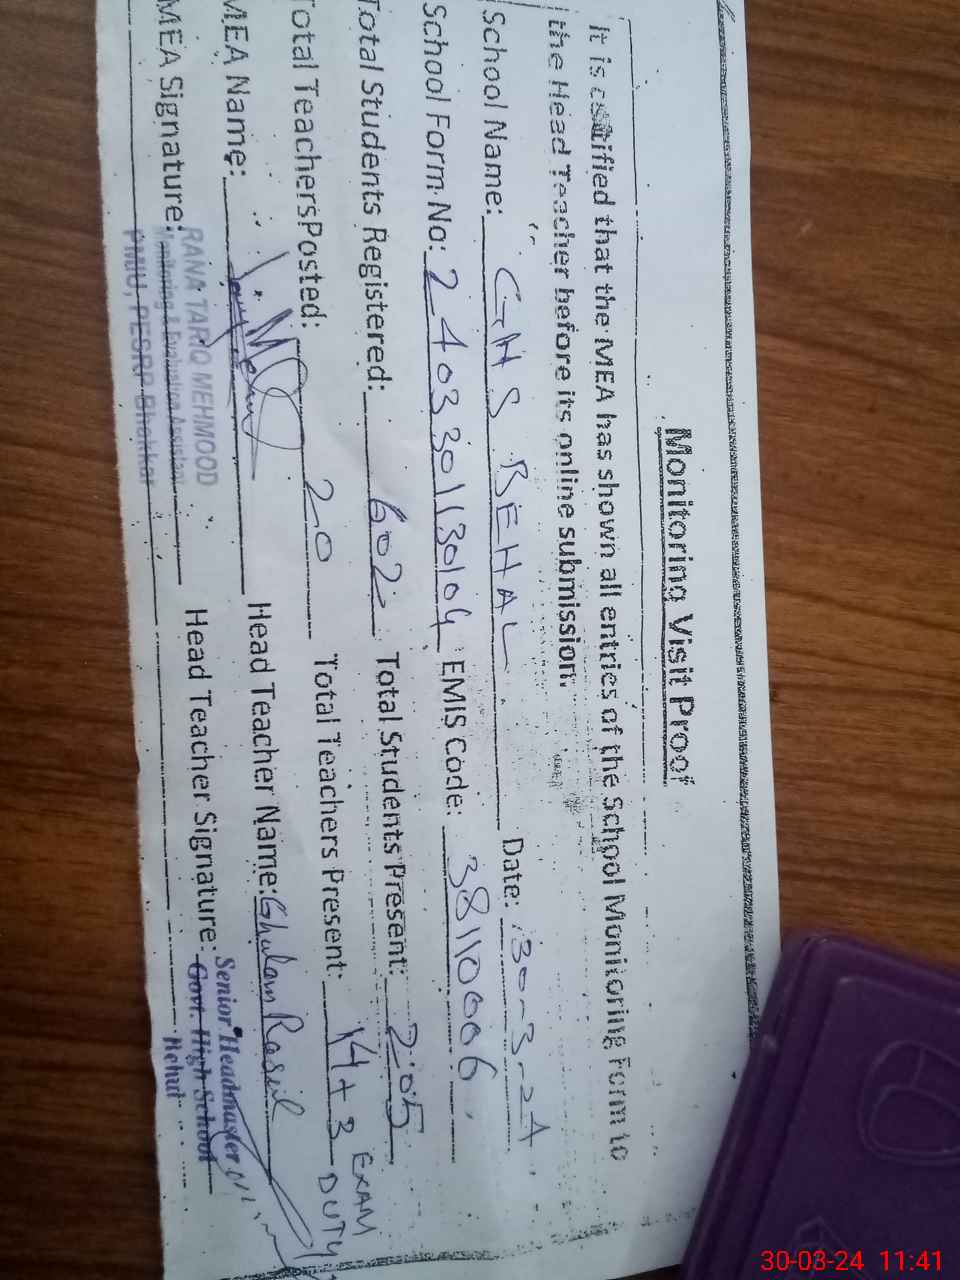 Monitoring Visit Proof
It is certified that the MEA has shown all entries of the School Monitoring Form to
the Head Teacher before its online submission.
School Name: GHS BEHAL Date: 30-3-24
School Form No: 2403301130104 EMIS Code: 38110006
Total Students Registered: 602 Total Students Present: 205
Total Teachers Posted: 20 Total Teachers Present: 14+3 EXAM DUTY
MEA Name: Head Teacher Name: Ghulam Rasul
MEA Signature: Head Teacher Signature:
RANA TARIQ MEHMOOD
Monitoring & Evaluation Assistant
PMIU, PESRP Bhakkar
Senior Headmaster
Govt. High School
Behal
30-03-24 11:41